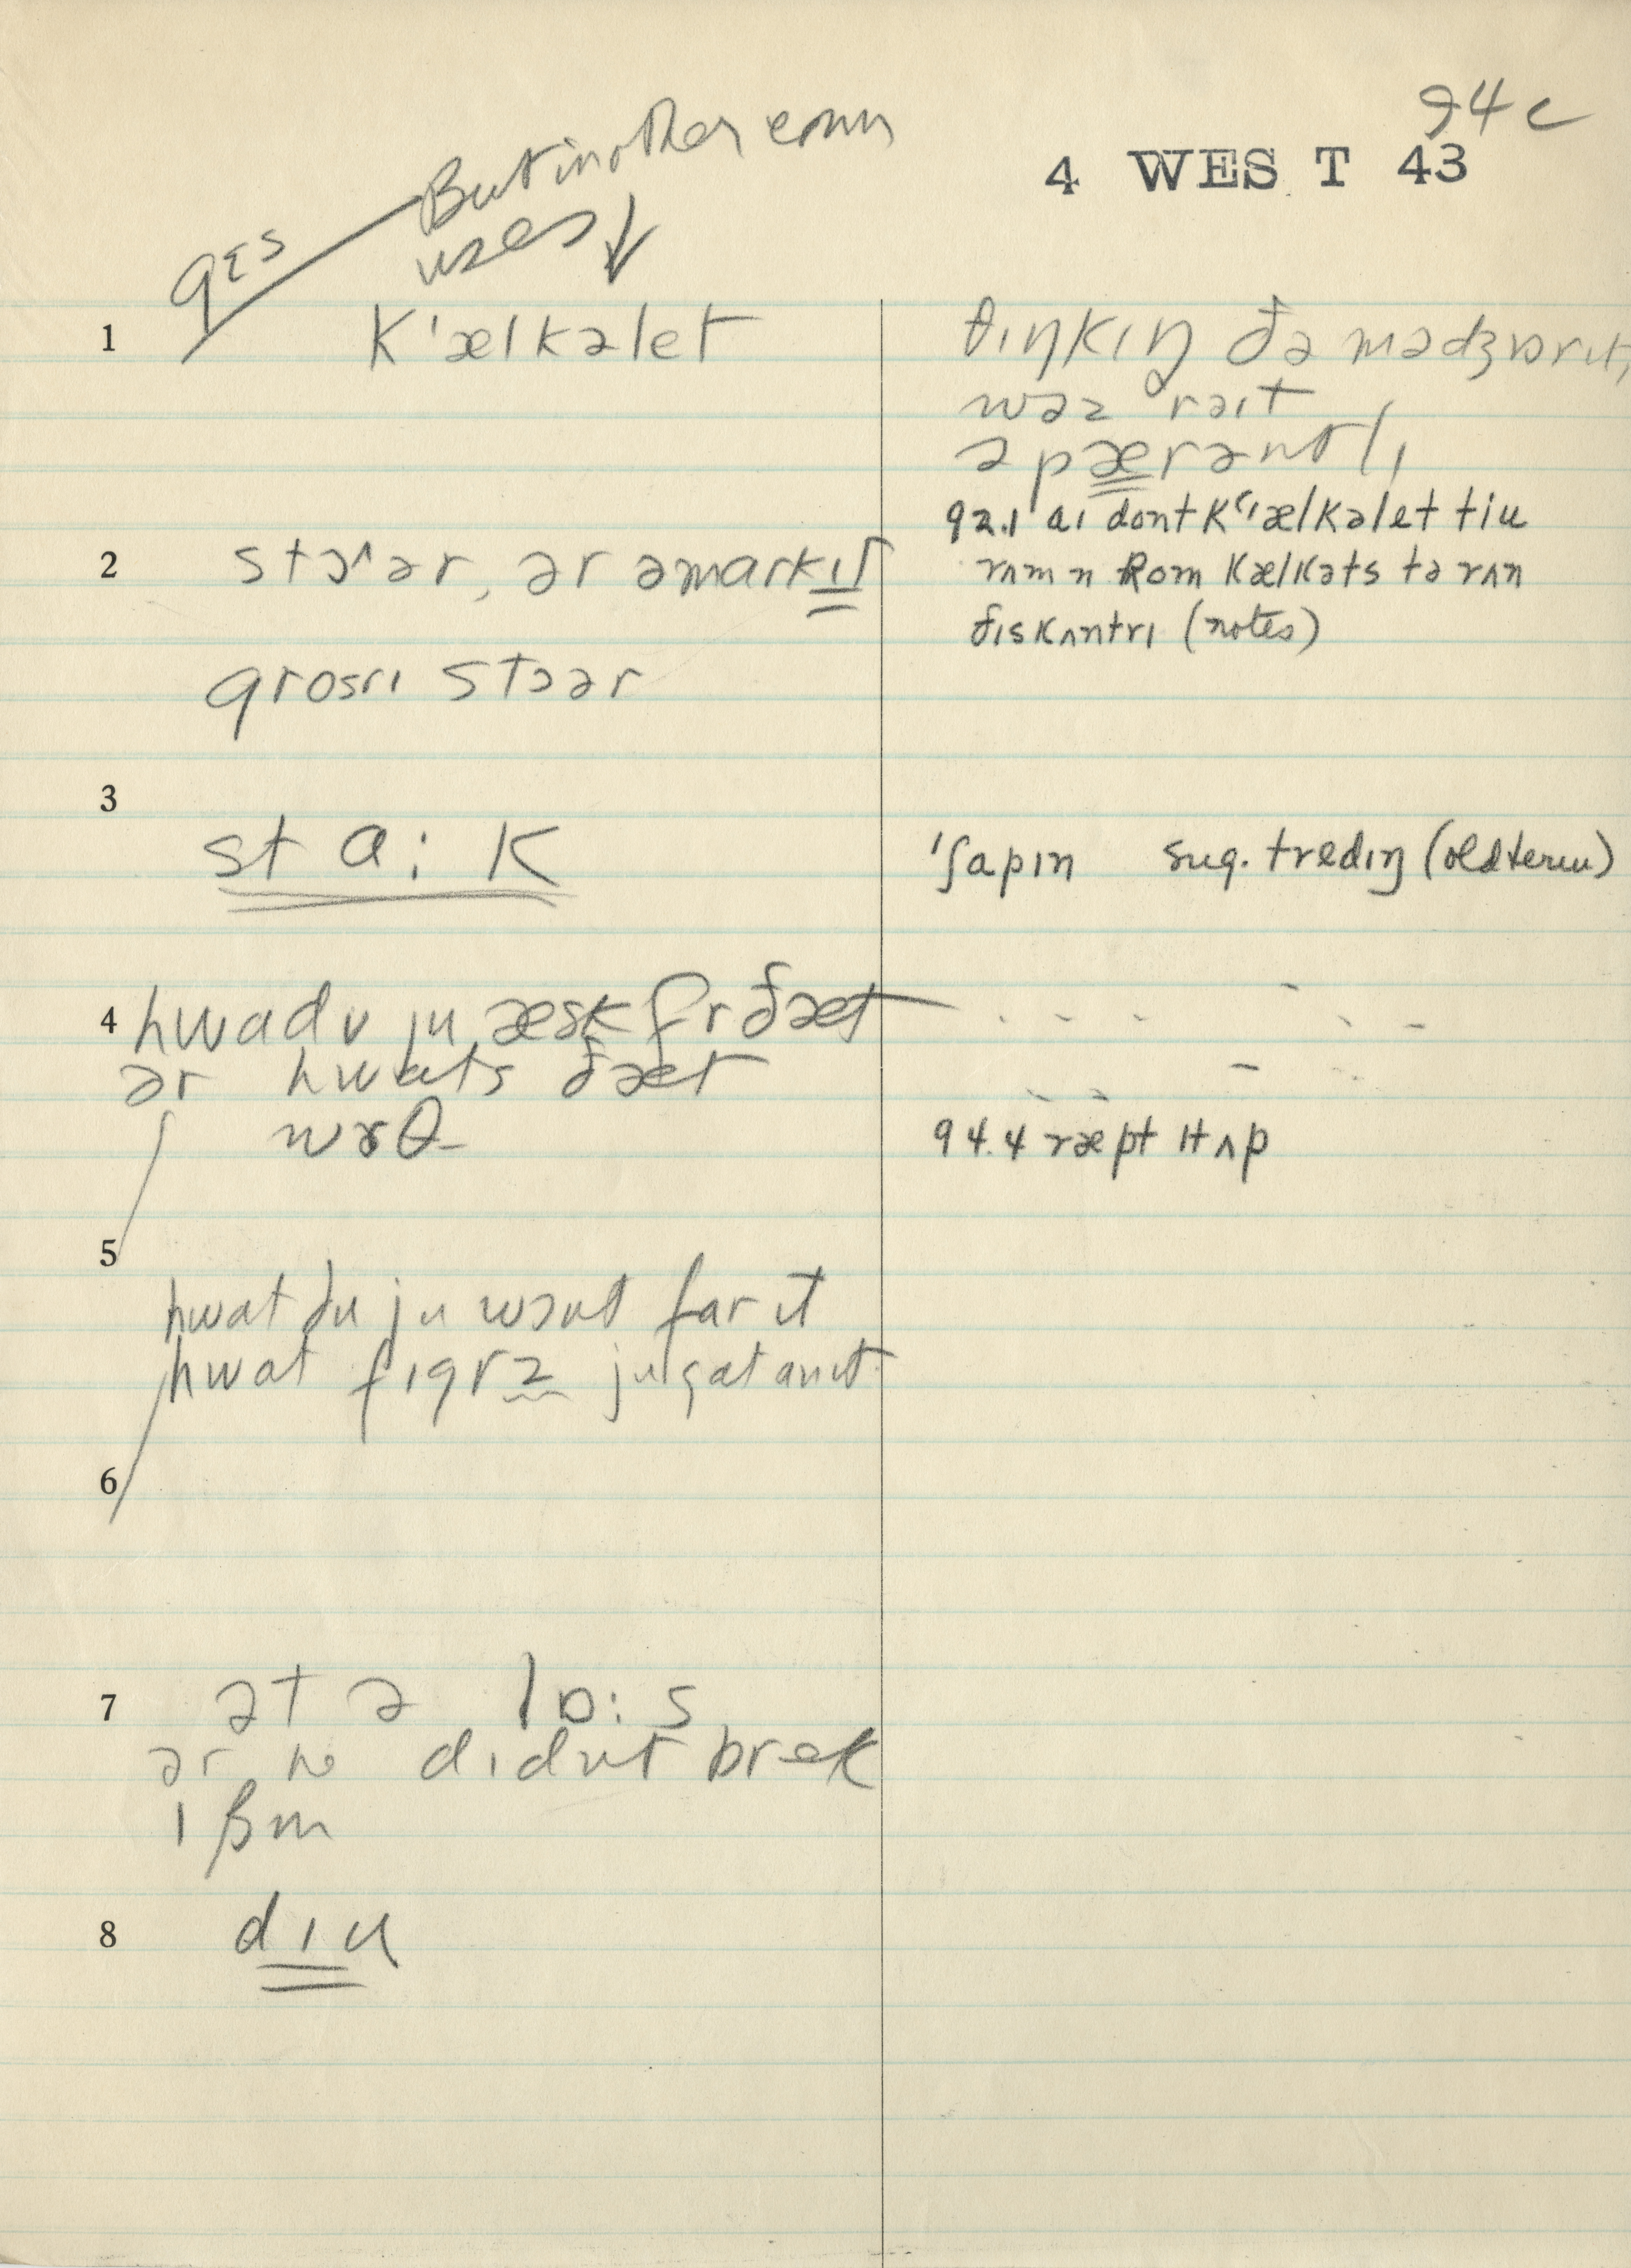 94c
4 WEST 43
gɛs
But in other conv
uses ↓
1
k'ælkəlet
θɪŋkɪŋ ðə mədʒɒrɪtɪ
wəz rəɪt
əpærəntlɪ
92.1 aɪ dont k'ælkəlet tɪu
2
stɔ^ər, ər əmarkɪt
rʌm n Rom kælkəts tə rʌn
ðɪs kʌntrɪ (notes)
grosrɪ stɔər
3
sta:k
'ʃapɪn sug. tredɪŋ (old term)
4
hwadu ju æsk fr ðæt
ər hwats ðæt
wɤθ
94.4 ræpt ɪt ʌp
5
hwat du ju wɔnt far it
hwat fɪgrz ju gat an ɪt
6
7
ət ə lɒ:s
ər didnt brek
8
dɪu